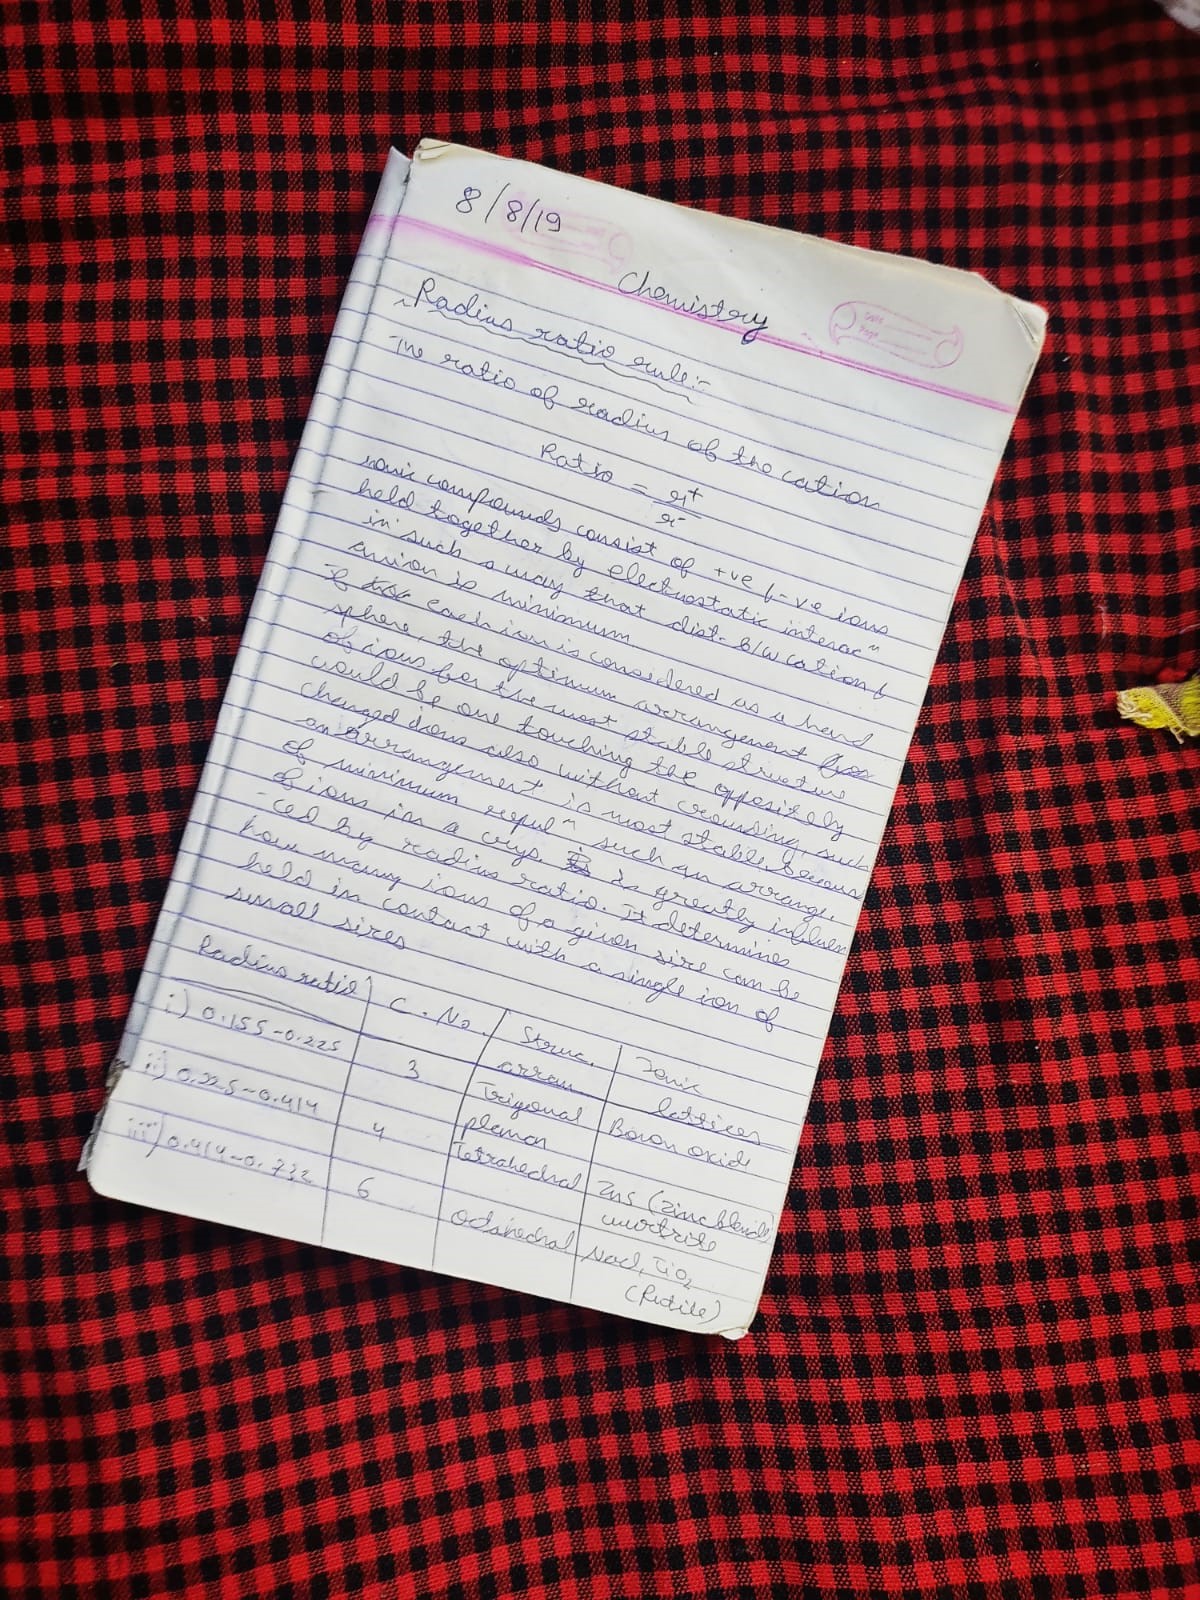 8/8/19
Chemistry
Date
Page
Radius ratio rule:-
The ratio of radius of the cation
Ratio = r+
r-
ionic compounds consist of +ve & -ve ions
held together by electrostatic interacn
in such a way that dist. b/w cation &
anion is minimum.
If each ion is considered as a hard
sphere, the optimum arrangement
of ions for the most stable structure
would be one touching the oppositely
charged ions also without crowding, such
an arrangement is most stable because
of minimum repuln such an arrange.
of ions in a crys. is greatly influen
-ced by radius ratio. It determines
how many ions of a given size can be
held in contact with a single ion of
small sizes
Radius ratio | C. No. | Struc. arran | Ionic lattices
i) 0.155-0.225 | 3 | Trigonal planar | Boron oxide
ii) 0.225-0.414 | 4 | Tetrahedral | ZnS (zinc blende) wurtzite
iii) 0.414-0.732 | 6 | Octahedral | NaCl, TiO2 (Rutile)